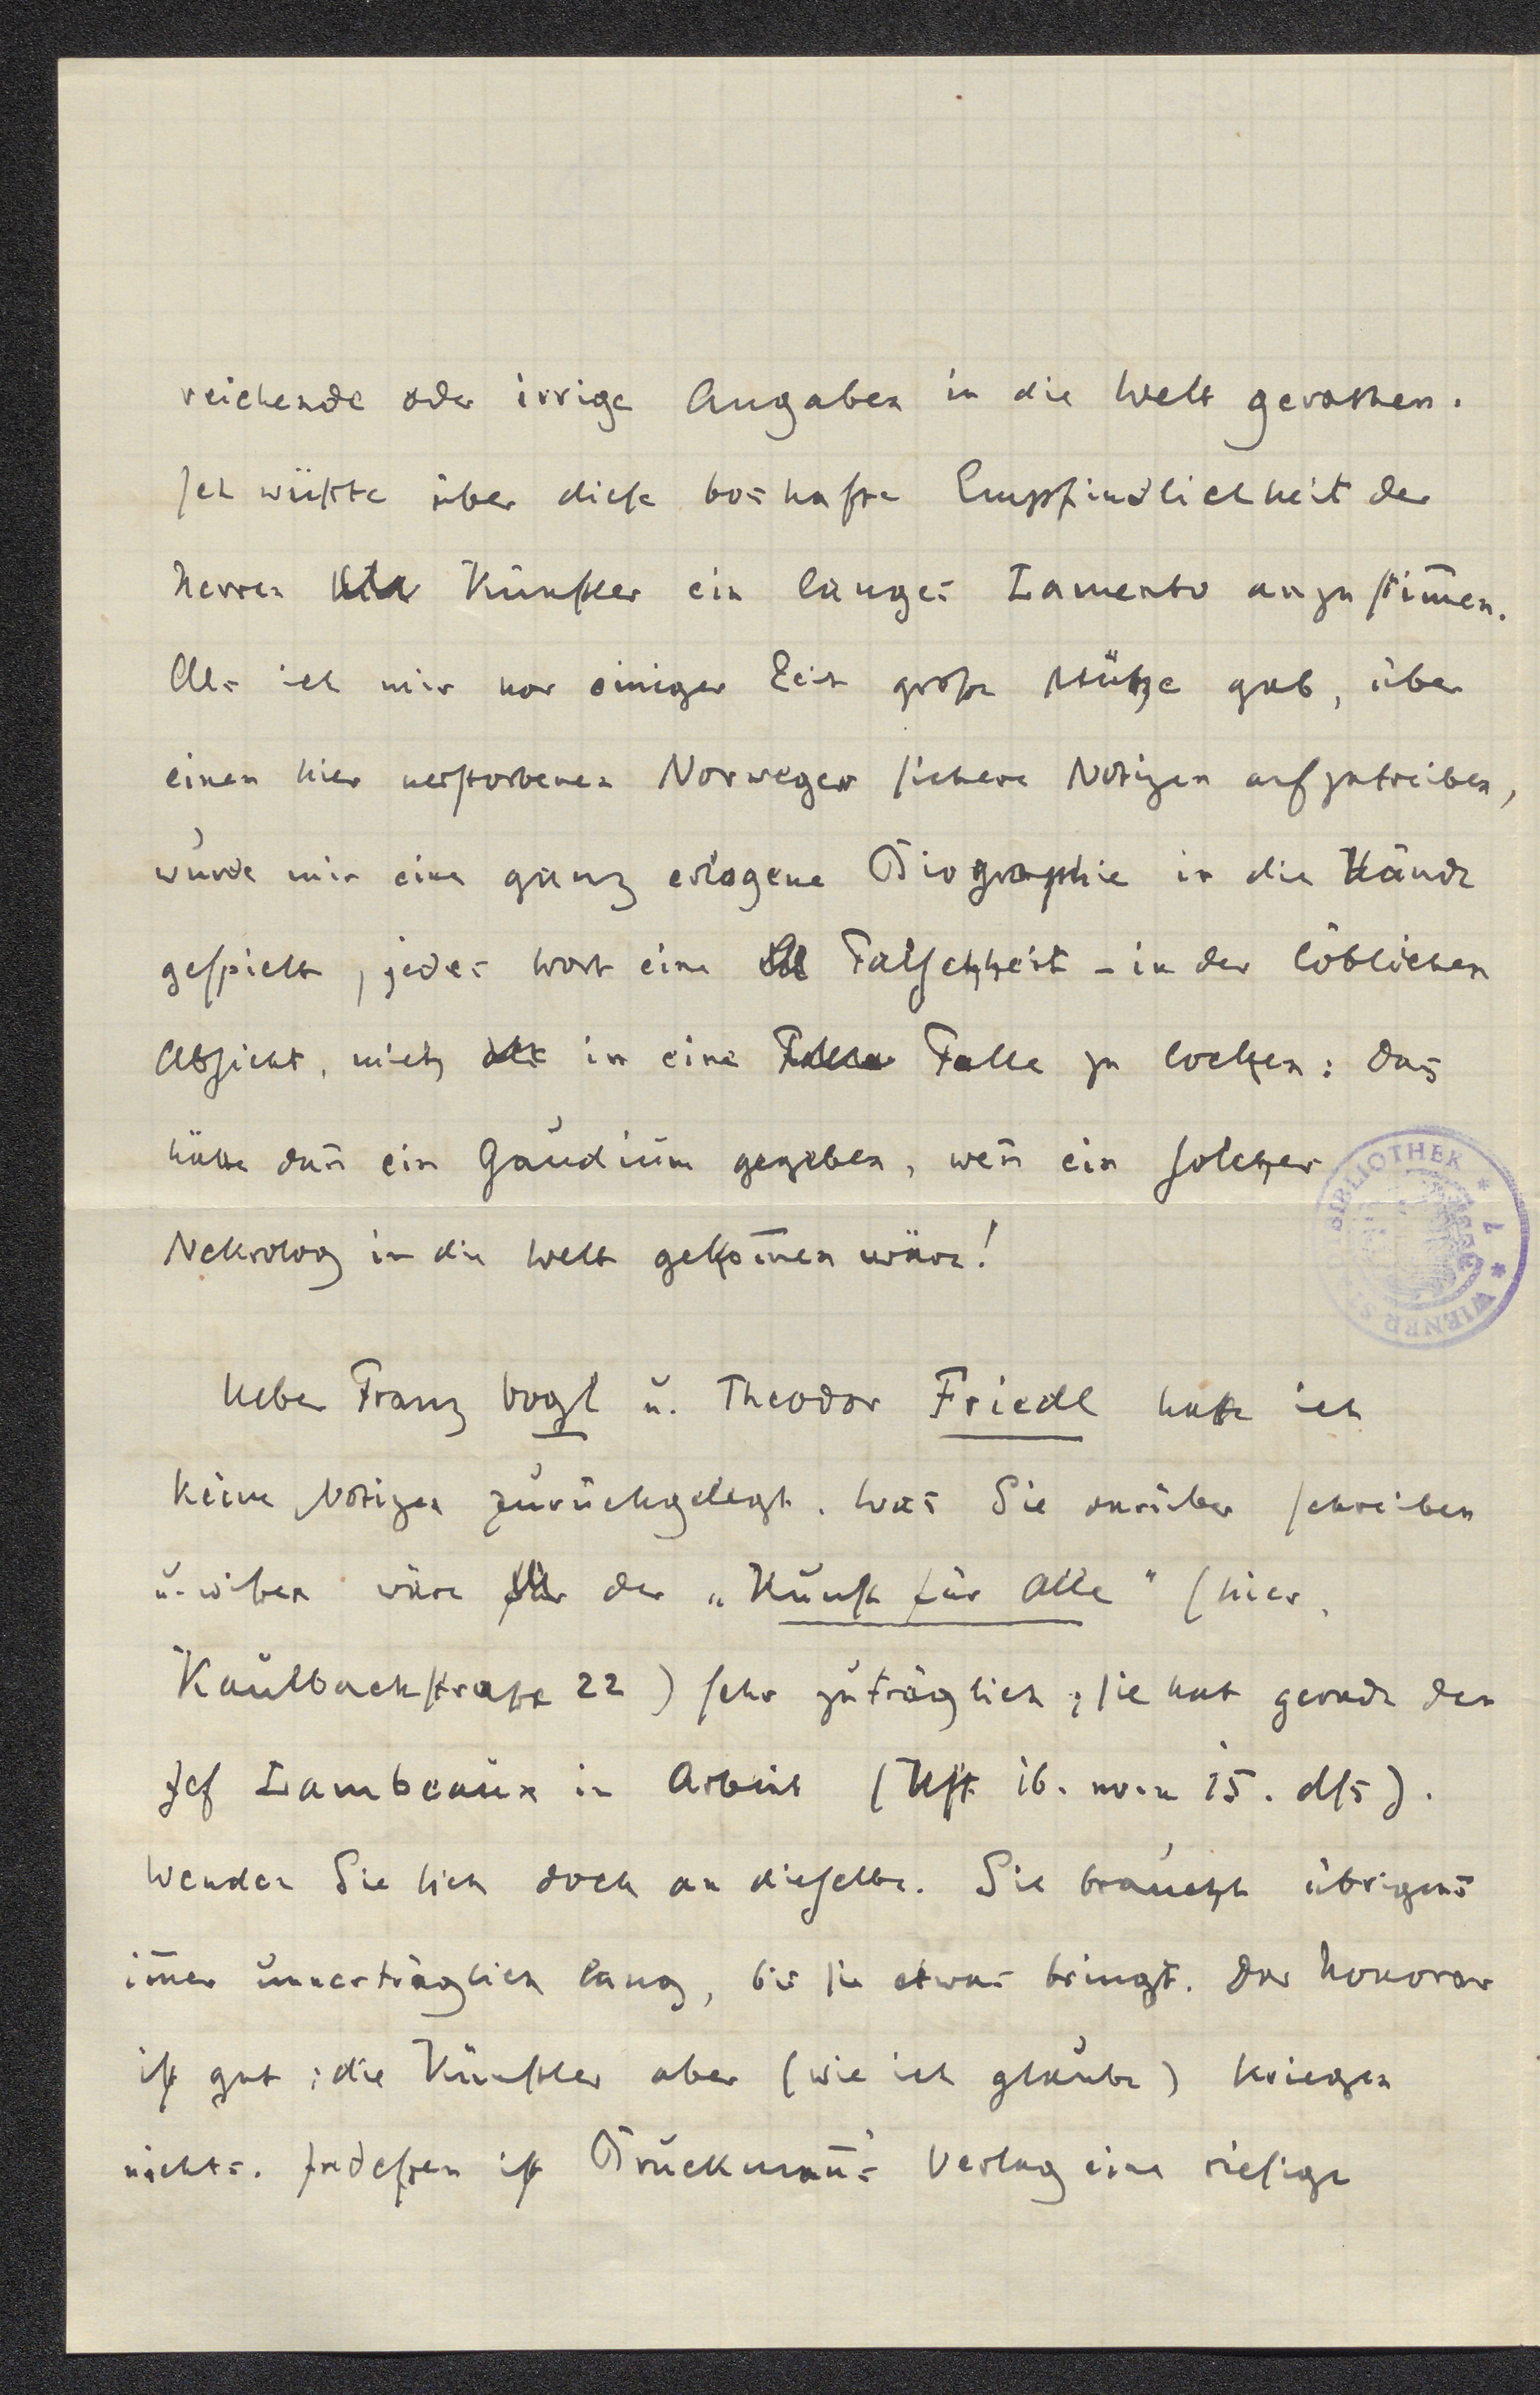 reichende oder irrige Angaben in die Welt gerathen.
Ich wüßte über diese boshafte Empfindlichkeit der
Herren Künstler ein langes Lamento anzustim̄en.
Als ich mir vor einiger Zeit große Mühe gab, über
einen hier verstorbenen Norweger sichere Notizen aufzutreiben,
wurde mir eine ganz erlogene Biographie in die Hände
gespielt, jedes Wort eine Falschheit – in der löblichen
Absicht, mich in eine Falle zu locken: das
hätte dan̄ ein Gaudium gegeben, wen̄ ein solcher
Nekrolog in die Welt gekom̄en wäre!
Ueber Franz Vogl u. Theodor Friedl hatte ich
keine Notizen zurückgelegt. Was Sie darüber schreiben
u. wißen wäre der „Kunst für Alle" (hier,
Kaulbachstraße 22) sehr zuträglich; sie hat gerade den
Jef Lambeaux in Arbeit (Hft 16. vom 15. dſs).
Wenden Sie sich doch an dieselbe. Sie braucht übrigens
im̄er unerträglich lang, bis sie etwas bringt. Das Honorar
ist gut; die Künstler aber (wie ich glaube) kriegen
nichts. Indeßen ist Bruckman̄'s Verlag eine riesige
BIBLIOTHEK * 7 * WIENER ST